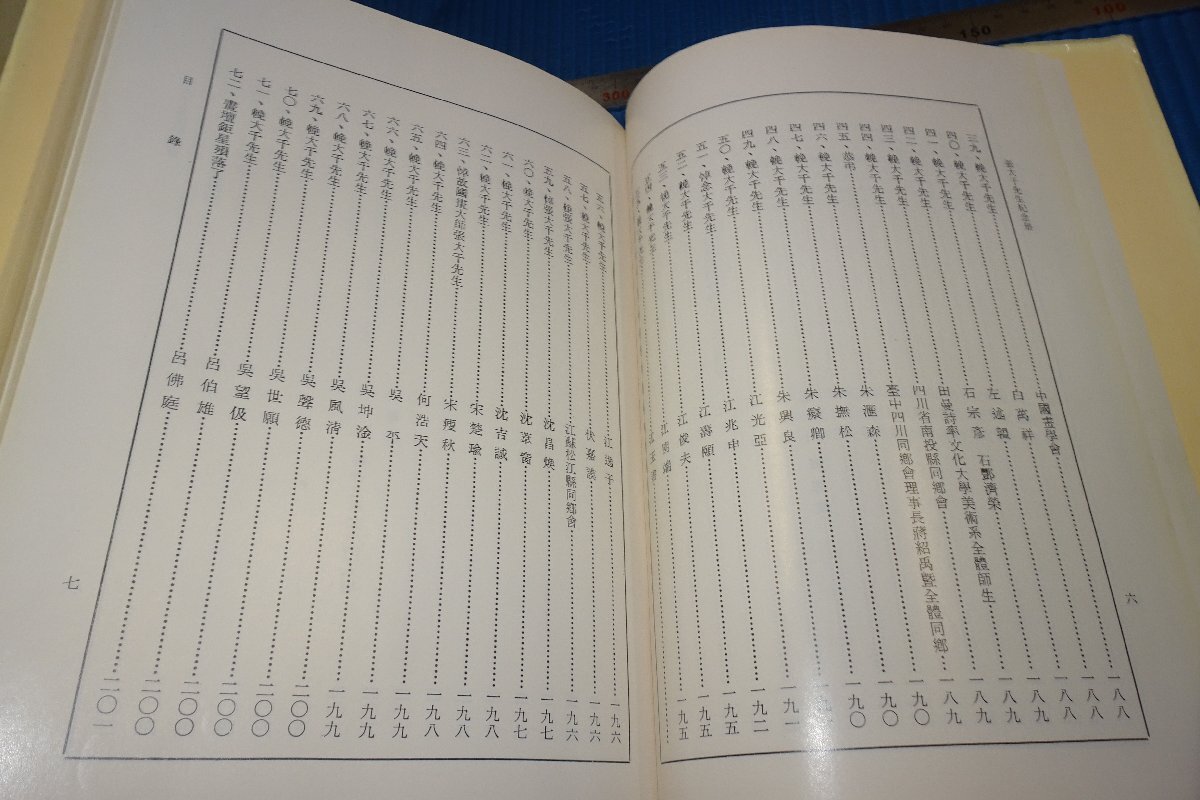 張大千先生紀念冊
六
三九、輓大千先生 中國畫學會 一八八
四〇、輓大千先生 白萬祥 一八八
四一、輓大千先生 左 一八八
四二、輓大千先生 石宗彥 石鄭濟榮 一八九
四三、輓大千先生 田曼詩率文化大學美術系全體師生 一八九
四四、輓大千先生 四川省南投縣同鄉會 一八九
四五、悲弔 臺中四川同鄉會理事長蔣紹禹暨全體同鄉 一八九
四六、輓大千先生 朱滙森 一九〇
四七、輓大千先生 朱撫松 一九〇
四八、輓大千先生 朱癡卿 一九〇
四九、輓大千先生 朱興良
五〇、輓大千先生 江光亞 一九一
五一、悼念大千先生 江兆申 一九二
五二、輓大千先生 江壽願 一九五
五三、輓大千先生 江俊夫 一九五
五四、輓大千先生 一九五
五六、輓大千先生 江逸子 一九六
五七、輓大千先生 伏嘉謨 一九六
五八、輓張大千先生 江蘇松江縣同鄉會 一九六
五九、悼張大千先生 沈昌煥 一九七
六〇、輓大千先生 沈 一九七
六一、輓大千先生 沈吉誠 一九八
六二、輓大千先生 宋楚瑜 一九八
六三、悼故國畫大師張大千先生 宋瘦秋 一九八
六四、輓大千先生 何浩天 一九九
六五、輓大千先生 吳平 一九九
六六、輓大千先生 吳坤淦 一九九
六七、輓大千先生 吳風清 二〇〇
六八、輓大千先生 吳聲德 二〇〇
六九、輓大千先生 吳世願 二〇〇
七〇、輓大千先生 吳望伋 二〇〇
七一、輓大千先生 呂伯雄 二〇〇
七二、畫壇鉅星殞落了 呂佛庭 二〇一
目錄
七
300
150
100